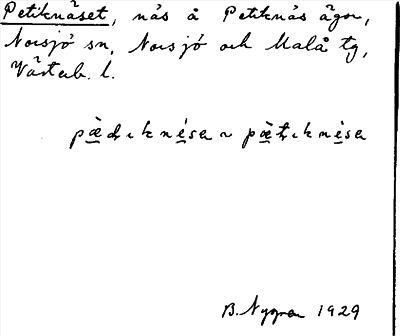 Petiknäset, näs å Petiknäs ägor,
Norsjö sn, Norsjö och Malå tg,
Västerb. l.
pæ̀dıknésa ~ pæ̀tıknésa
B. Nygren 1929